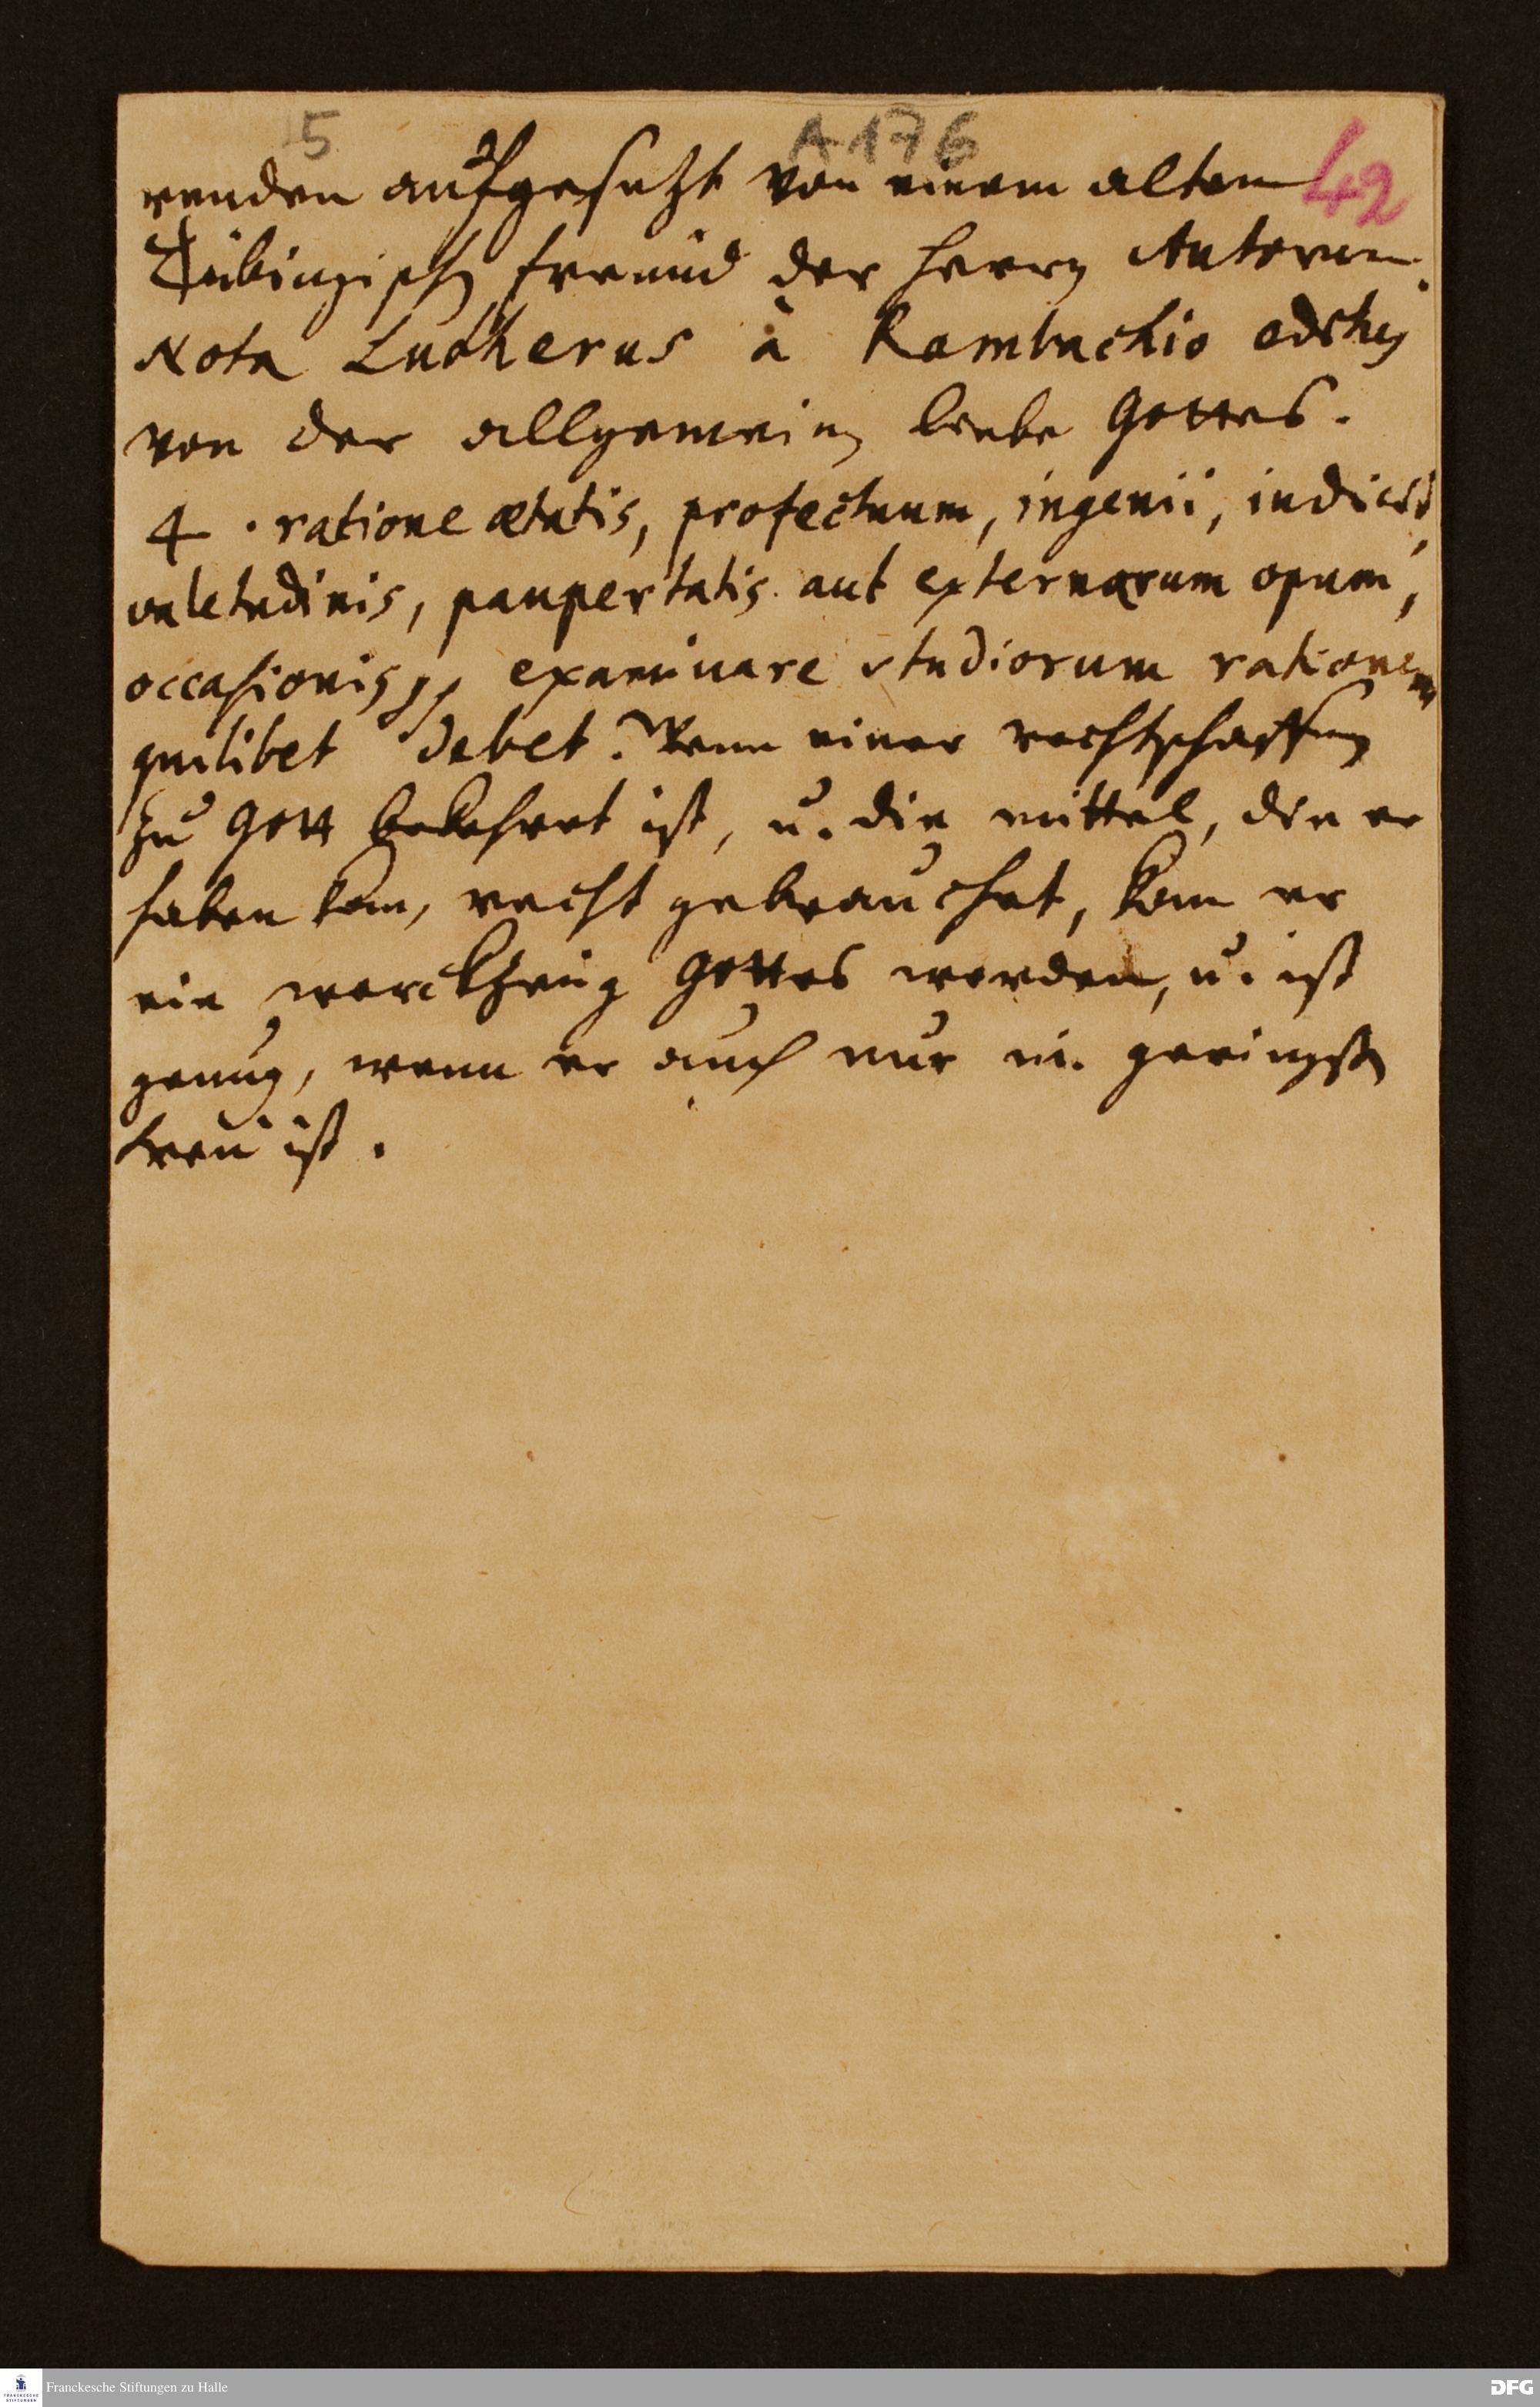 5 A 176 42
renden aufgesetzt von einem alten
Tübingisch freund der Herrn Autorum.
Nota Lutherus à Rambachio editus
von der allgemeinen liebe Gottes.
4. ratione ætatis, profectuum, ingenii, iudicii,
valetudinis, paupertatis aut externarum opum,
occasionis, examinare studiorum rationem
quilibet debet. Wenn einer rechtschaffen
zu Gott bekehret ist, u. die mittel, die er
haben kan, recht gebrauchet, kan er
ein werckzeug Gottes werden, u. ist
genug, wenn er auch nur im geringsten
treu ist.
Franckesche Stiftungen zu Halle
DFG